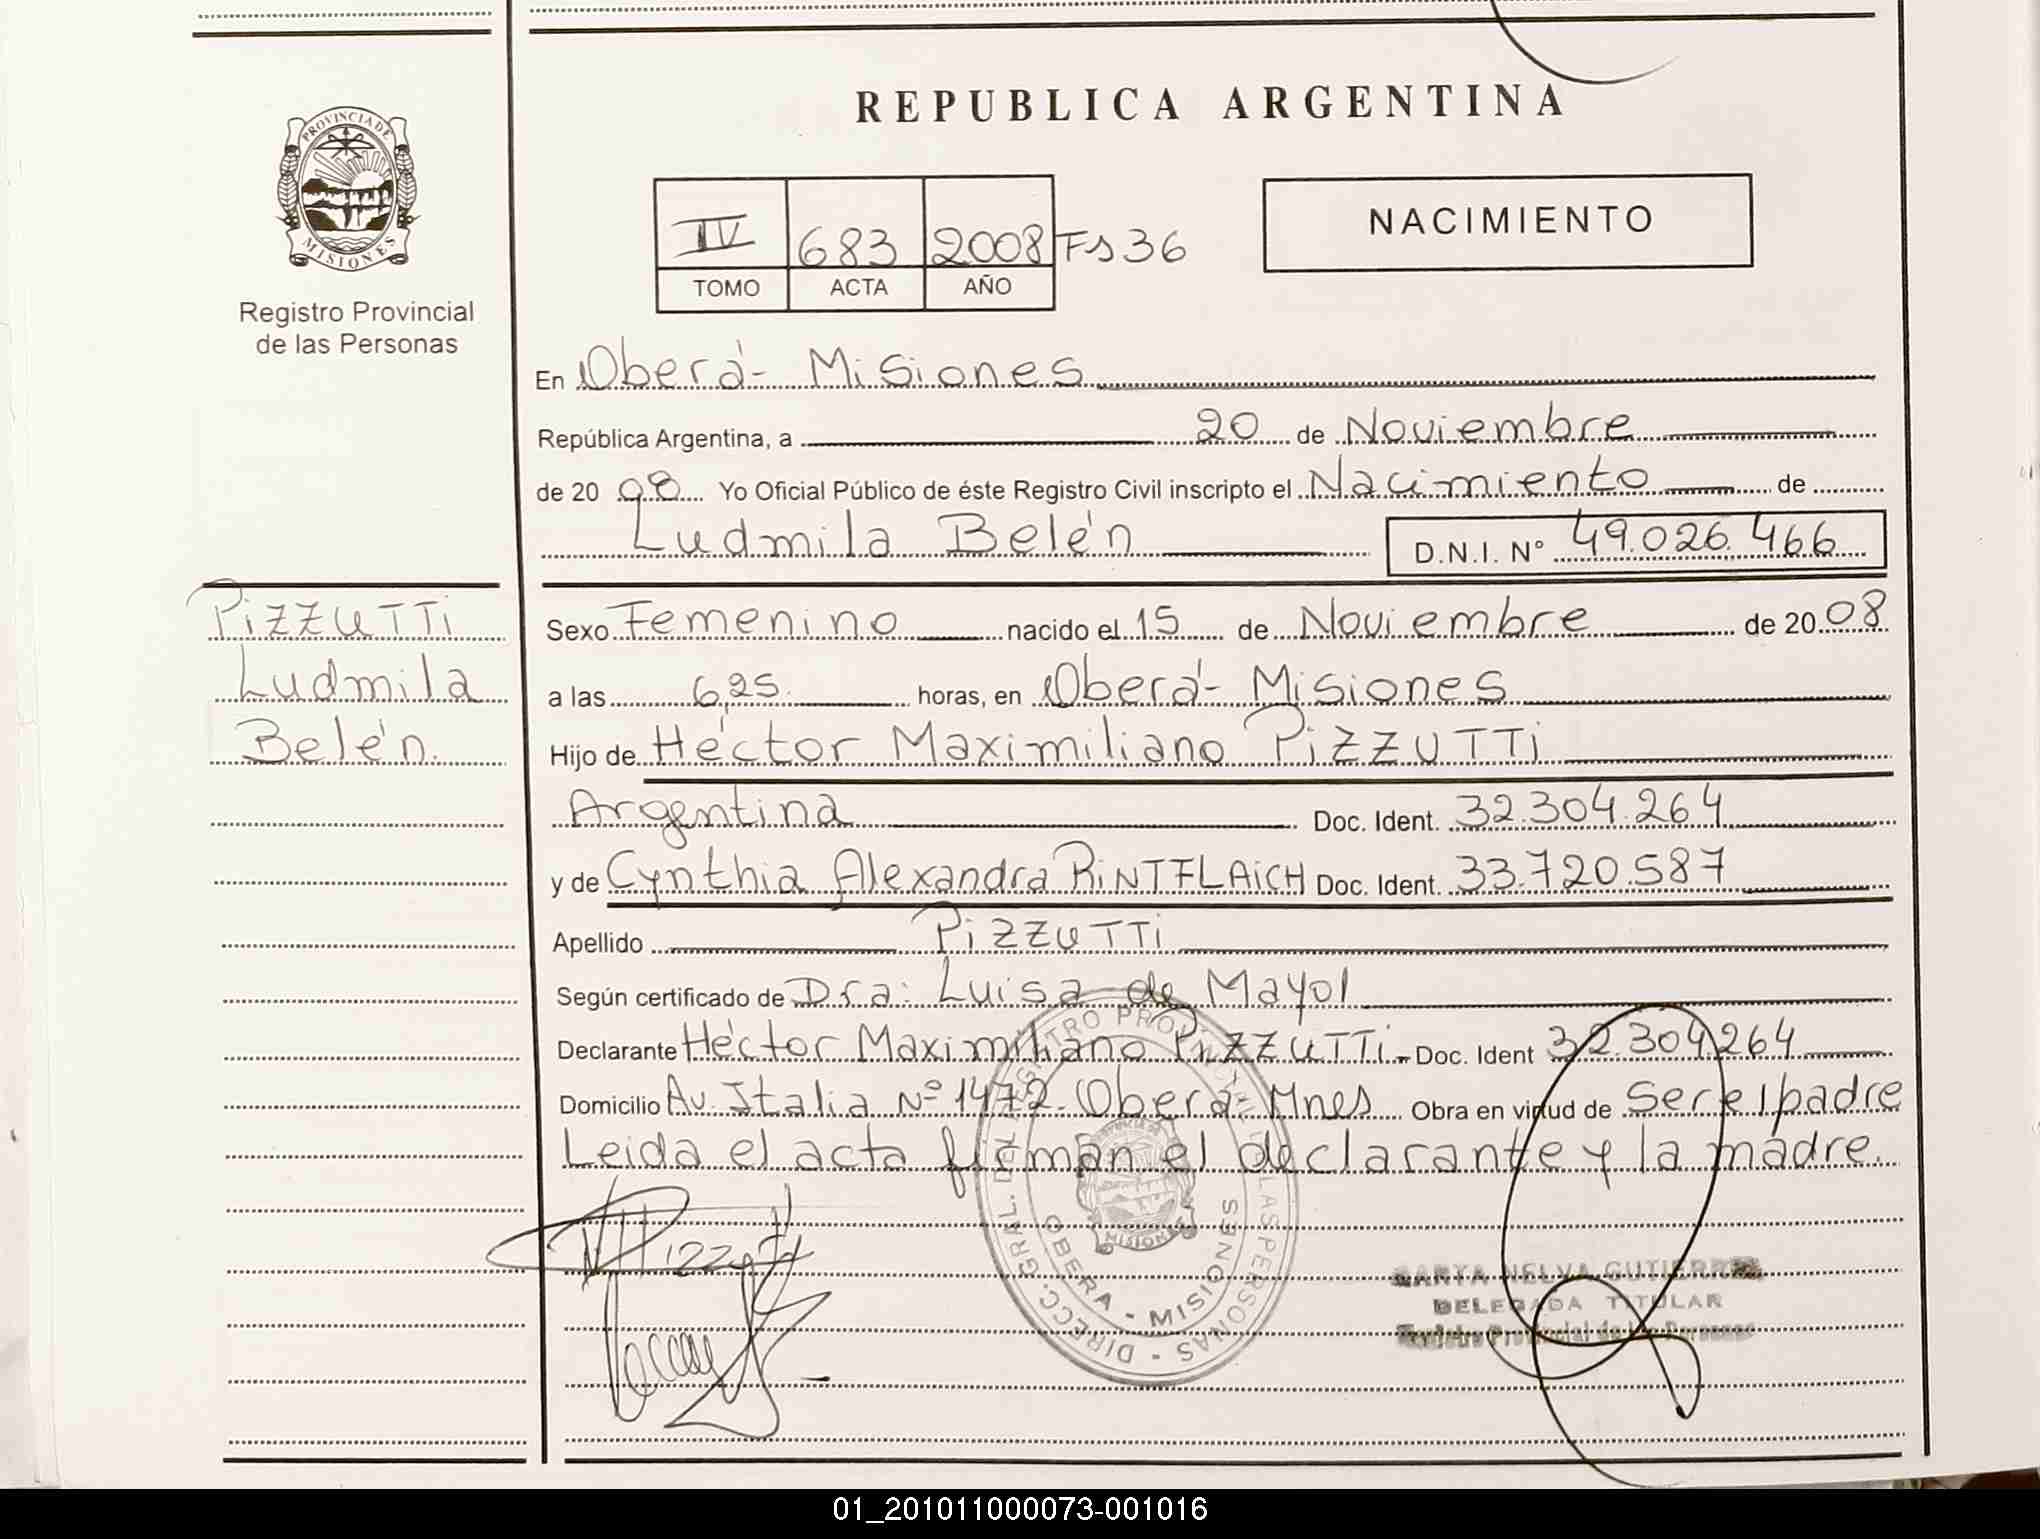 PROVINCIA DE
MISIONES
Registro Provincial
de las Personas
REPUBLICA ARGENTINA
IV 683 2008 Fs 36
TOMO ACTA AÑO
NACIMIENTO
En Oberá - Misiones
República Argentina, a 20 de Noviembre
de 20 08 Yo Oficial Público de éste Registro Civil inscripto el Nacimiento de
Ludmila Belén D.N.I. N° 49.026.466
PIZZUTTI
Ludmila
Belén.
Sexo Femenino nacido el 15 de Noviembre de 20 08
a las 6,25 horas, en Oberá - Misiones
Hijo de Héctor Maximiliano PIZZUTTI
Argentina Doc. Ident. 32.304.264
y de Cynthia Alexandra RINTFLAICH Doc. Ident. 33.720.587
Apellido PIZZUTTI
Según certificado de Dra: Luisa de Mayol
Declarante Héctor Maximiliano PIZZUTTI.- Doc. Ident 32.304264
Domicilio Av. Italia N° 1472- Oberá- Mnes Obra en virtud de Ser el padre
Leida el acta firman el declarante y la madre.
DIRECC. GRAL. DEL REGISTRO PROVINCIAL DE LAS PERSONAS -
OBERA - MISIONES
MISIONES
NELVA GUTIERREZ
DELEGADA TITULAR
Registro Provincial de las Personas
01_201011000073-001016